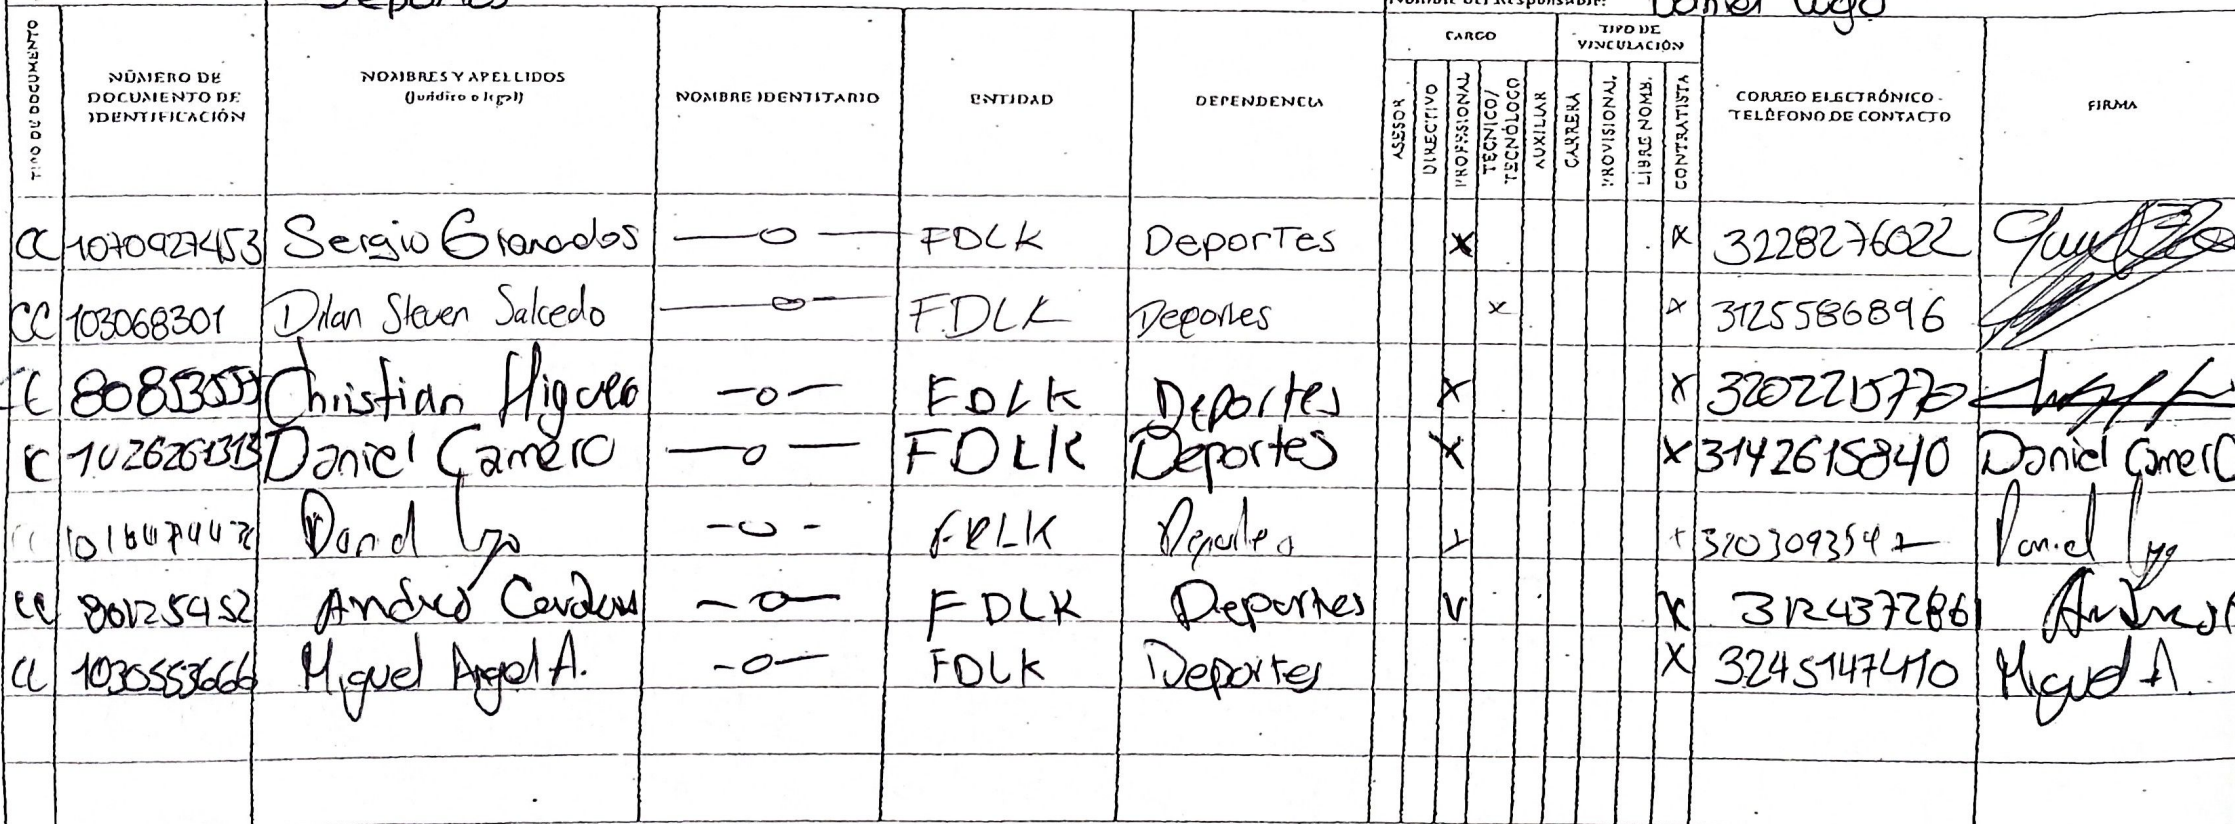 Deportes
Nombre del Responsable: Daniel Lugo
TIPO DE DOCUMENTO
NÚMERO DE DOCUMENTO DE IDENTIFICACIÓN
NOMBRES Y APELLIDOS (Jurídico o legal)
NOMBRE IDENTITARIO
ENTIDAD
DEPENDENCIA
CARGO
ASESOR
DIRECTIVO
PROFESIONAL
TÉCNICO/ TECNÓLOGO
AUXILIAR
TIPO DE VINCULACIÓN
CARRERA
PROVISIONAL.
LIBRE NOMB.
CONTRATISTA
CORREO ELECTRÓNICO - TELÉFONO DE CONTACTO
FIRMA
CC 1070927453 Sergio Granados —o— FDLK Deportes X X 3228276022
CC 103068301 Dilan Steven Salcedo —o— FDLK Deportes X X 3125586896
Christian —o— FDLK Deportes X X
Daniel Camero —o— FDLK Deportes X X 3142615840 Daniel Camero
Daniel Lugo -o- FDLK Deportes X Daniel Lugo
CC -o- FDLK Deportes X X 3124372861
CC 1030553666 Miguel Angel A. -o- FDLK Deportes X 3245147410 Miguel A.